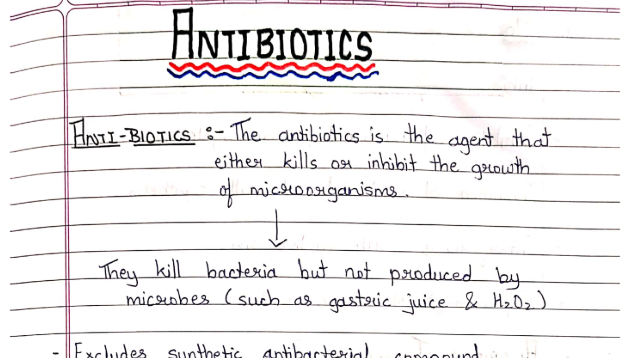 ANTIBIOTICS
ANTI-BIOTICS :- The antibiotics is the agent that
either kills or inhibit the growth
of microorganisms.
They kill bacteria but not produced by
microbes (such as gastric juice & H₂O₂)
- Excludes synthetic antibacterial compound